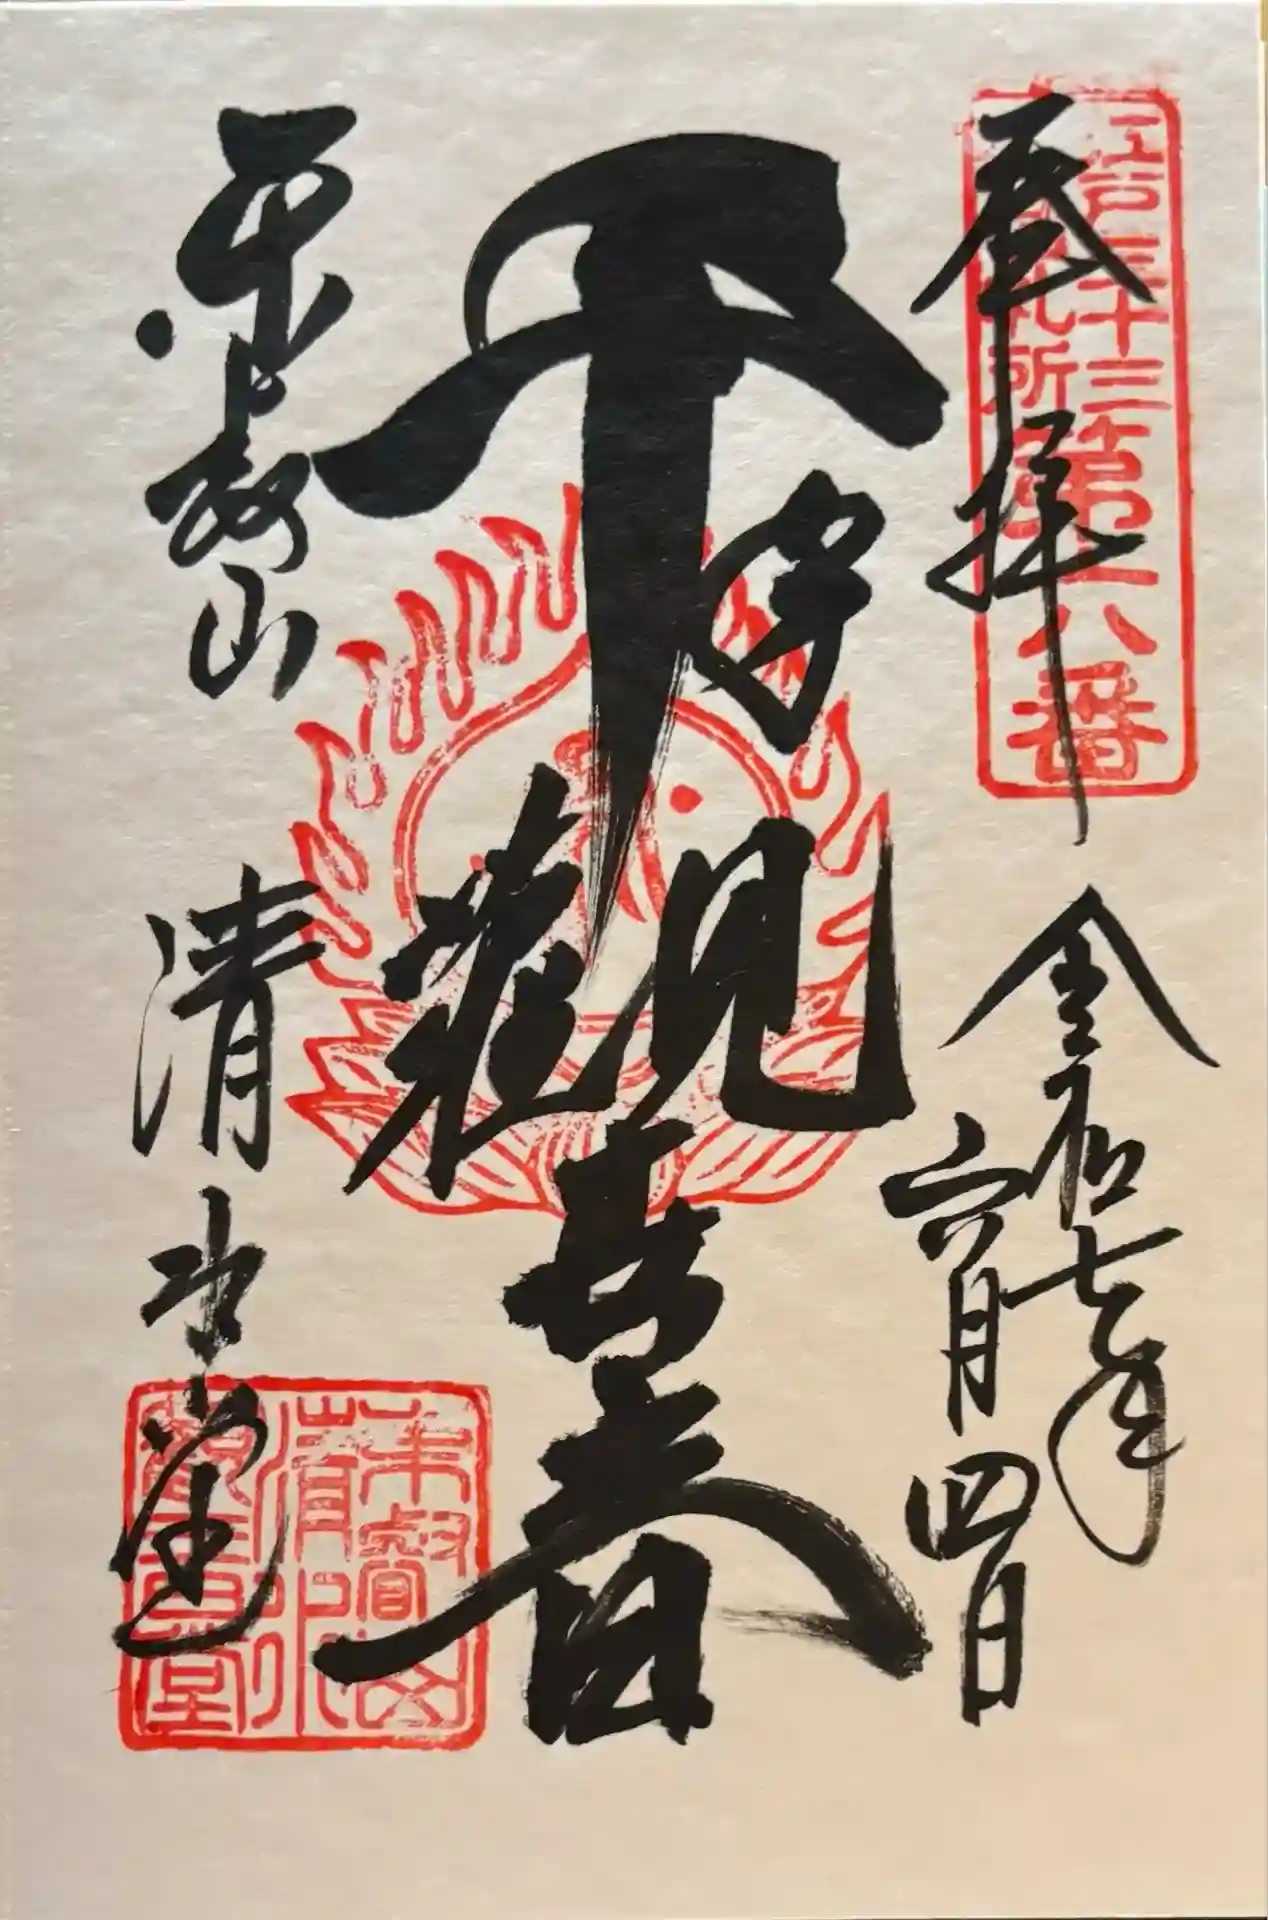 江戸三十三
観音札所
第六番
奉拝
令和七年
六月四日
千手觀世音
東叡山
清水堂
東叡山
清水
觀音堂